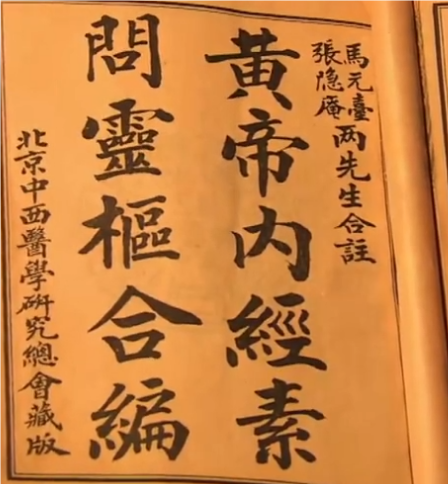 馬元臺
張隐庵
两先生合註
黄帝内經素
問靈樞合編
北京中西醫學硏究總會藏版